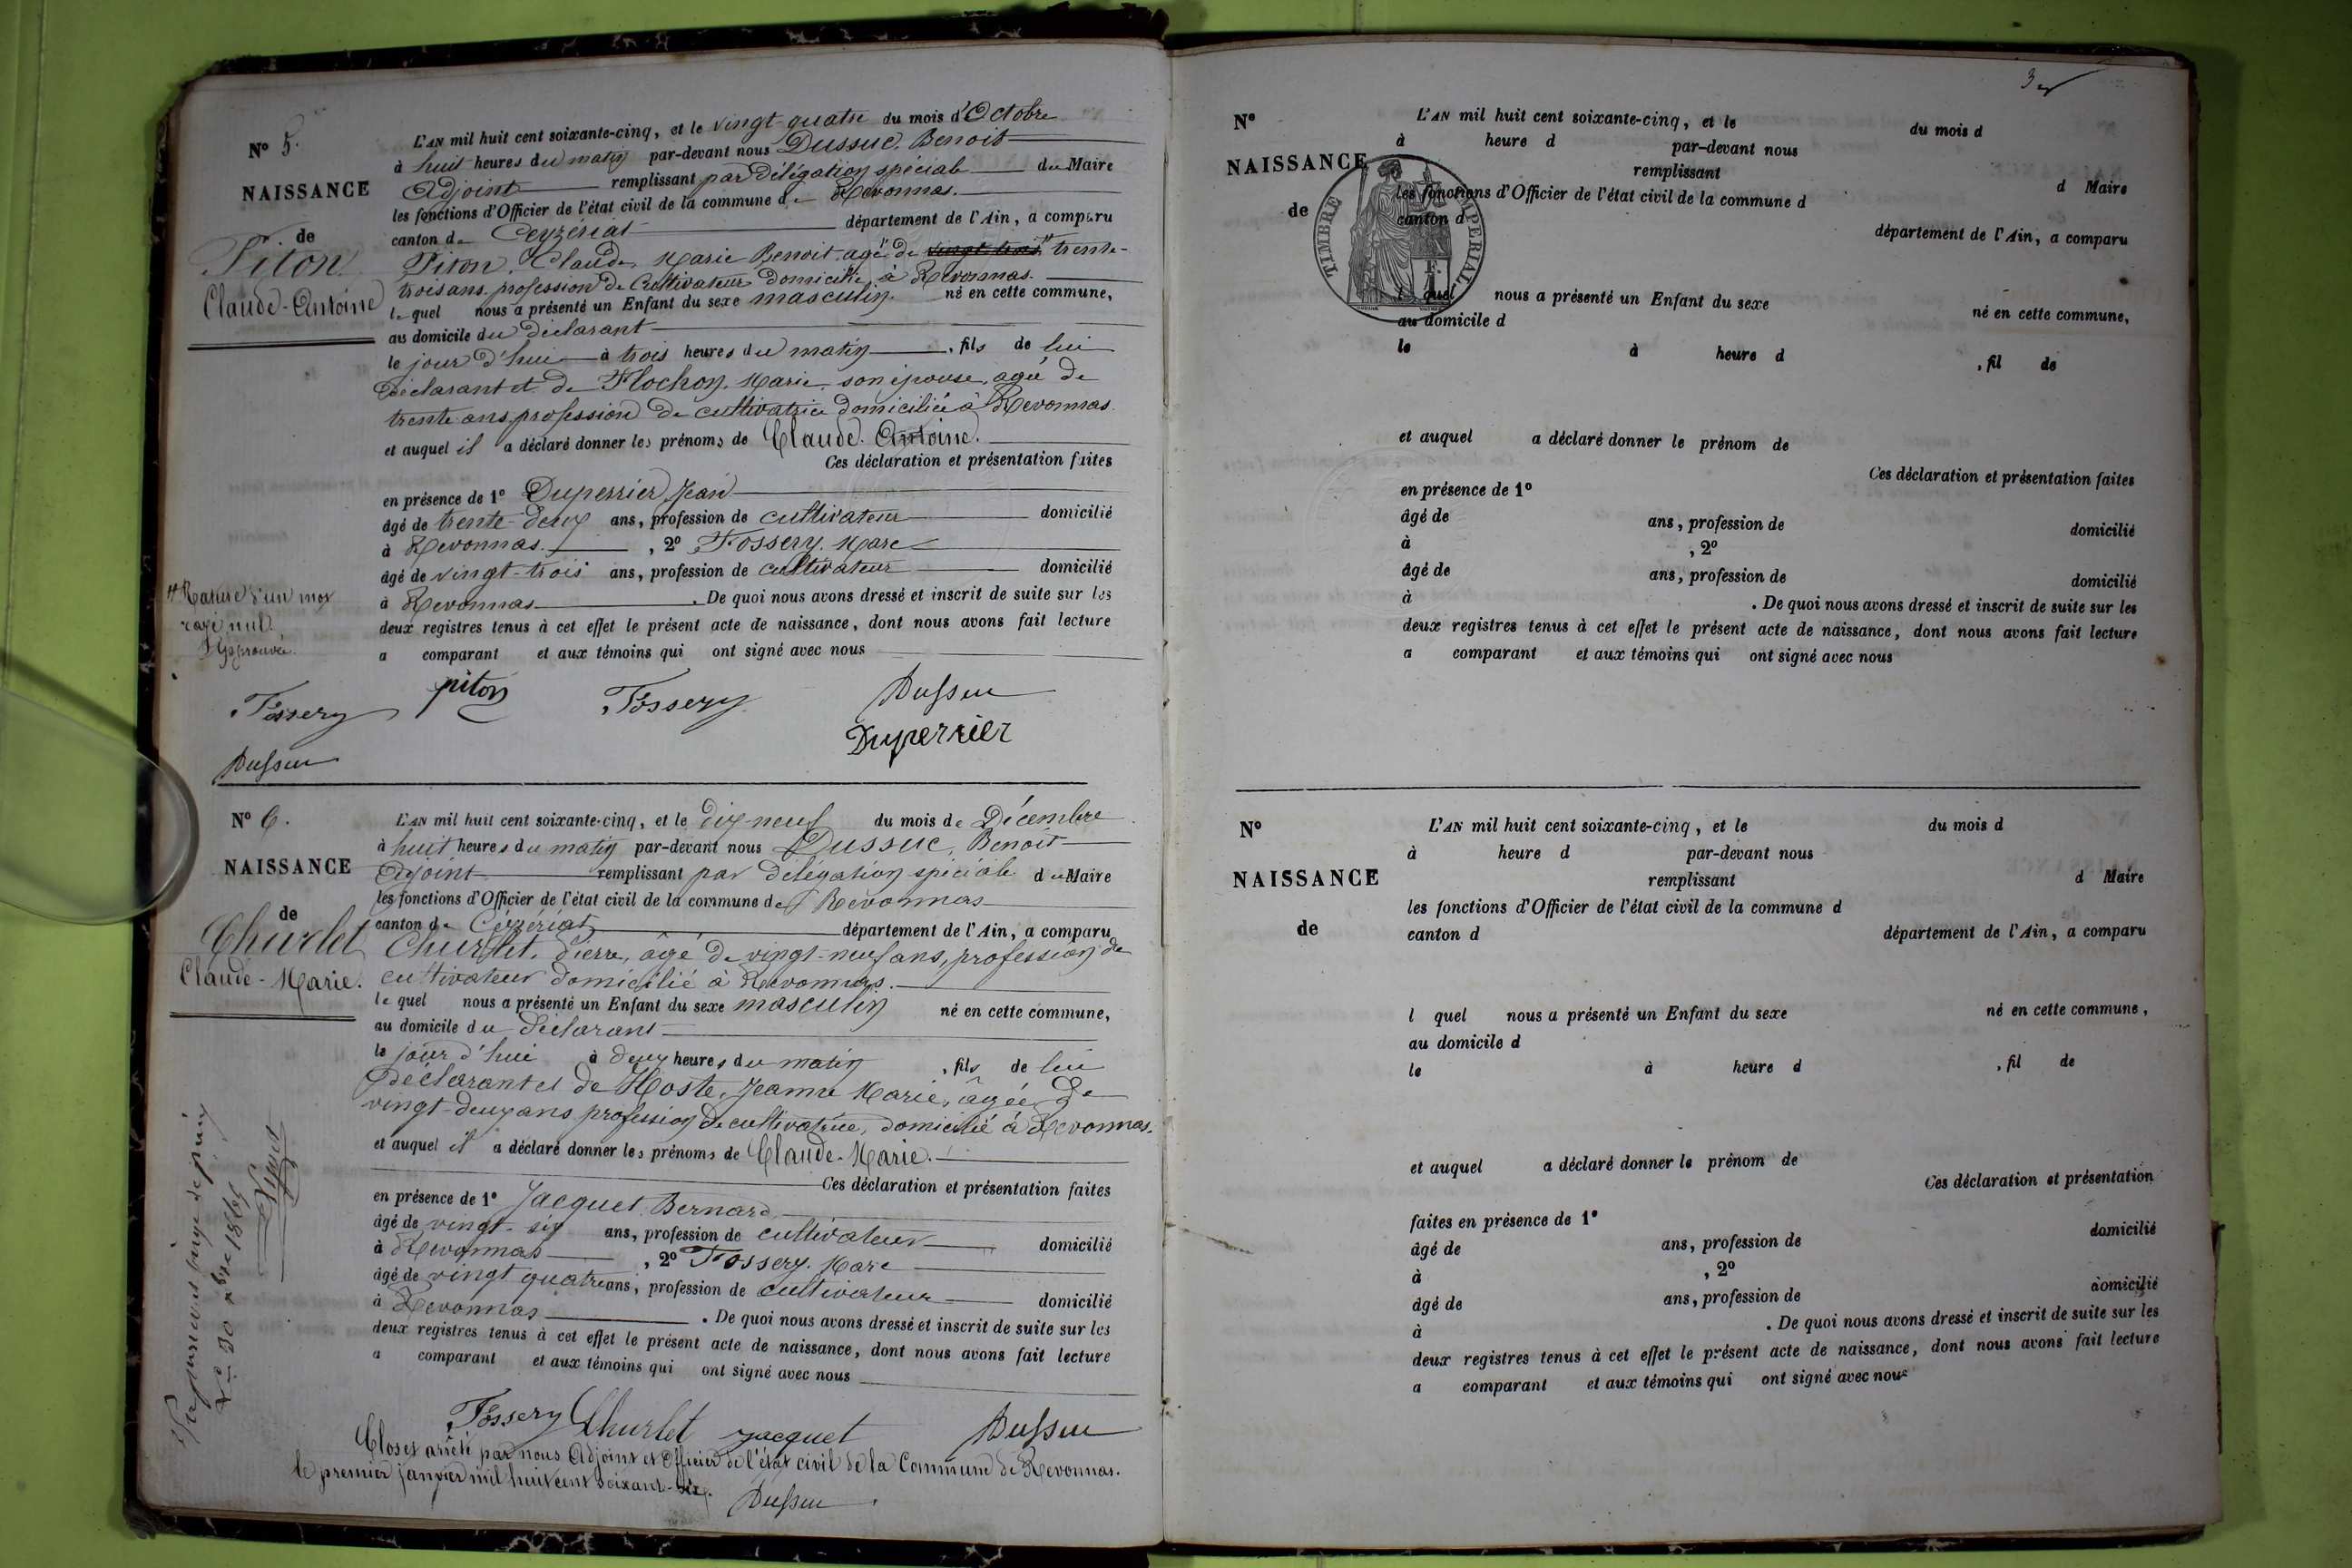 N° 5.
NAISSANCE
de
Piton
Claude-Antoine
L'AN mil huit cent soixante-cinq, et le vingt-quatre du mois d'Octobre
à huit heures du matin par-devant nous Dussuc, Benoit
Adjoint remplissant par délégation spéciale du Maire
les fonctions d'Officier de l'état civil de la commune de Revonnas.
canton de Ceyzeriat département de l'Ain, a comparu
Piton, Claude, Marie Benoit, agé de vingt trois trente-
trois ans, profession de Cultivateur domicilié à Revonnas.
lequel nous a présenté un Enfant du sexe masculin né en cette commune,
au domicile du déclarant
le jour d'hui à trois heures du matin, fils de lui
déclarant et de Flochon, Marie, son épouse, agé de
trente ans, profession de cultivatrice domiciliée à Revonnas.
et auquel il a déclaré donner les prénoms de Claude-Antoine.
Ces déclaration et présentation faites
en présence de 1° Duperrier Jean
âgé de trente-deux ans, profession de cultivateur domicilié
à Revonnas, 2° Fossery, Marc
âgé de vingt-trois ans, profession de cultivateur domicilié
à Revonnas. De quoi nous avons dressé et inscrit de suite sur les
deux registres tenus à cet effet le présent acte de naissance, dont nous avons fait lecture
a comparant et aux témoins qui ont signé avec nous
Rature d'un mot
rayé nul
Approuvée.
Fossery piton Fossery Dussuc
Duperrier
Dussuc
N° 6.
NAISSANCE
de
Churlet
Claude-Marie.
L'AN mil huit cent soixante-cinq, et le dix-neuf du mois de Décembre
à huit heures du matin par-devant nous Dussuc, Benoit
Adjoint remplissant par délégation spéciale du Maire
les fonctions d'Officier de l'état civil de la commune de Revonnas
canton de Céyzériat département de l'Ain, a comparu
Churlet, Pierre, âgé de vingt-neuf ans, profession de
cultivateur domicilié à Revonnas.
lequel nous a présenté un Enfant du sexe masculin né en cette commune,
au domicile du déclarant
le jour d'hui à deux heures du matin, fils de lui
déclarant et de Hoste, Jeanne Marie, âgée de
vingt-deux ans profession de cultivatrice, domicilié à Revonnas.
et auquel il a déclaré donner les prénoms de Claude-Marie.
Ces déclaration et présentation faites
en présence de 1° Jacquet Bernard
âgé de vingt-six ans, profession de cultivateur domicilié
à Revonnas, 2° Fossery, Marc
âgé de vingt quatre ans, profession de cultivateur domicilié
à Revonnas. De quoi nous avons dressé et inscrit de suite sur les
deux registres tenus à cet effet le présent acte de naissance, dont nous avons fait lecture
a comparant et aux témoins qui ont signé avec nous
Fossery Churlet Jacquet Dussuc
Clos et arrêté par nous Adjoint et Officier de l'état civil de la Commune de Revonnas.
le premier janvier mil huit cent soixante-six.
Dussuc
juge de paix
30 xbre 1865
3
N°
NAISSANCE
de
TIMBRE IMPERIAL
L'AN mil huit cent soixante-cinq, et le du mois d
à heure d par-devant nous
remplissant d Maire
les fonctions d'Officier de l'état civil de la commune d
canton d département de l'Ain, a comparu
l quel nous a présenté un Enfant du sexe né en cette commune,
au domicile d
le à heure d , fil de
et auquel a déclaré donner le prénom de
Ces déclaration et présentation faites
en présence de 1°
âgé de ans, profession de domicilié
à , 2°
âgé de ans, profession de domicilié
à . De quoi nous avons dressé et inscrit de suite sur les
deux registres tenus à cet effet le présent acte de naissance, dont nous avons fait lecture
a comparant et aux témoins qui ont signé avec nous
N°
NAISSANCE
de
L'AN mil huit cent soixante-cinq, et le du mois d
à heure d par-devant nous
remplissant d Maire
les fonctions d'Officier de l'état civil de la commune d
canton d département de l'Ain, a comparu
l quel nous a présenté un Enfant du sexe né en cette commune,
au domicile d
le à heure d , fil de
et auquel a déclaré donner le prénom de
Ces déclaration et présentation
faites en présence de 1°
âgé de ans, profession de domicilié
à , 2°
âgé de ans, profession de domicilié
à . De quoi nous avons dressé et inscrit de suite sur les
deux registres tenus à cet effet le présent acte de naissance, dont nous avons fait lecture
a comparant et aux témoins qui ont signé avec nous